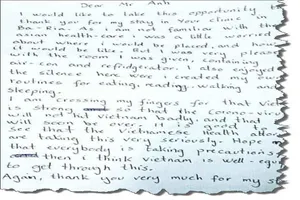 Dear Mr Anh
I would like to take this opportunity t
thank you for my stay in your clinic in
Ba-Ria. As I am not familiar with the
asian health-care I was a little worried
about where I would be placed, and how
it would be like. But I was so pleased
with the room I was given, containing
air-con and refridgerator. I also enjoyed
the silence here were i created my own
routines for eating, reading, walking and
sleeping.
I am crossing my fingers for that Vie
is strong so that the corona-viru
will not hit Vietnam badly, and that
will soon be over. It is good to
see that the Vietnamese health author
are taking this very seriously. Hope
that everybody is taking precautions
then i think Vietnam is well-equ
to get through this.
Again, thank you very much for my st